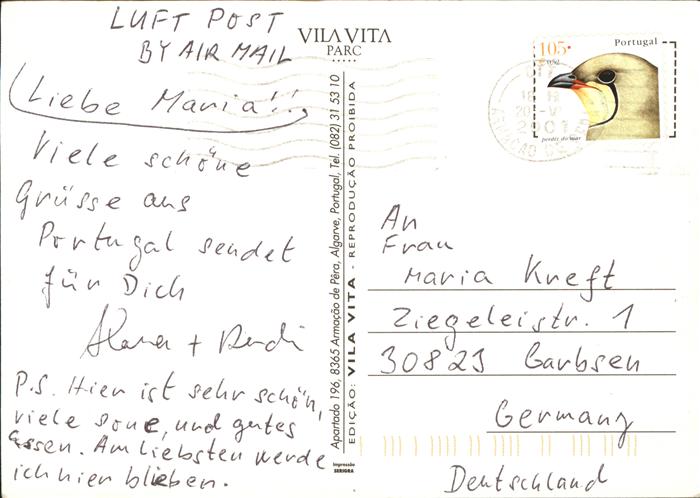 LUFT POST
BY AIR MAIL
Liebe Maria!!
Viele schöne
Grüsse aus
Portugal sendet
für Dich
P.S. Hier ist sehr schön,
viele sone, und gutes
Essen. Am liebsten werde
ich hier blieben.
VILA VITA
PARC
Apartado 196, 8365 Armação de Pêra, Algarve, Portugal, Tel. (082) 31 53 10
EDIÇÃO: VILA VITA - REPRODUÇÃO PROIBIDA
Impressão
SERIGRA
105
Portugal
perdiz do mar
2001
An
Frau
Maria Kreft
Ziegeleistr. 1
30823 Garbsen
Germany
Deutschland